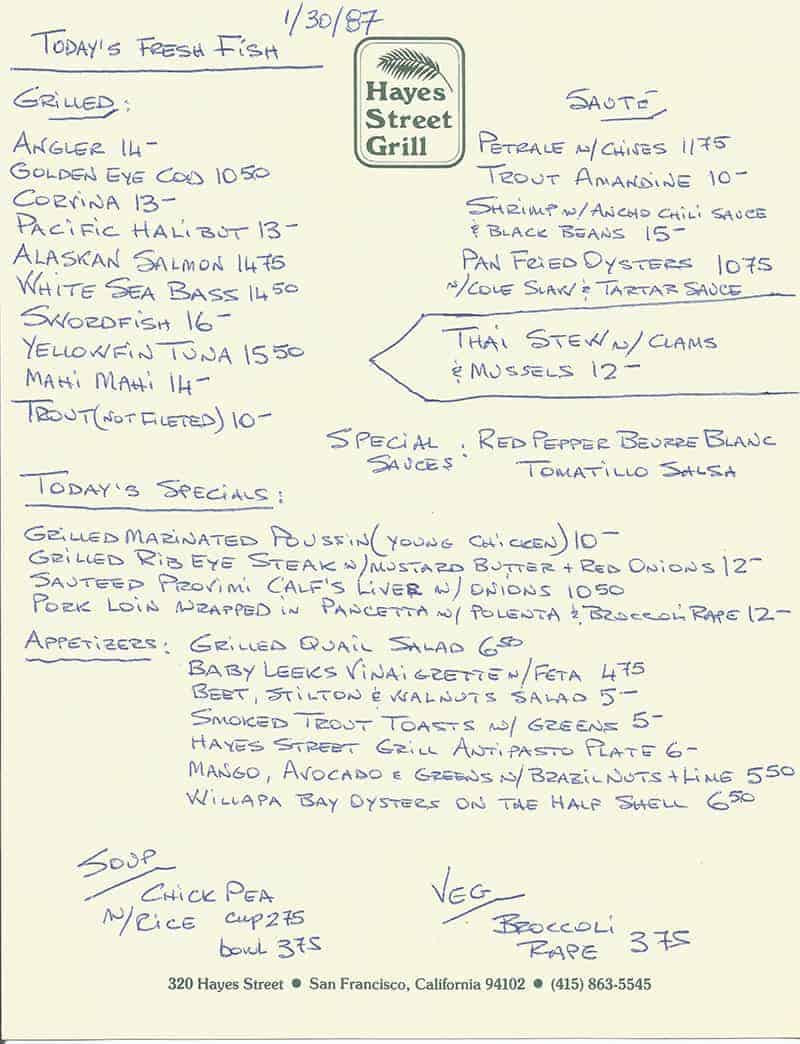 1/30/87
TODAY'S FRESH FISH
Hayes
Street
Grill
GRILLED:
ANGLER 14-
GOLDEN EYE COD 1050
CORVINA 13-
PACIFIC HALIBUT 13-
ALASKAN SALMON 1475
WHITE SEA BASS 1450
SWORDFISH 16-
YELLOWFIN TUNA 1550
MAHI MAHI 14-
TROUT (NOT FILETED) 10-
SAUTÉ
PETRALE W/CHIVES 1175
TROUT AMANDINE 10-
SHRIMP W/ANCHO CHILI SAUCE
& BLACK BEANS 15-
PAN FRIED OYSTERS 1075
W/COLE SLAW & TARTAR SAUCE
THAI STEW W/CLAMS
& MUSSELS 12-
SPECIAL SAUCES: RED PEPPER BEURRE BLANC
TOMATILLO SALSA
TODAY'S SPECIALS:
GRILLED MARINATED POUSSIN (YOUNG CHICKEN) 10-
GRILLED RIB EYE STEAK W/MUSTARD BUTTER + RED ONIONS 12-
SAUTEED PROVIMI CALF'S LIVER W/ ONIONS 1050
PORK LOIN WRAPPED IN PANCETTA W/ POLENTA & BROCCOLI RAPE 12-
APPETIZERS: GRILLED QUAIL SALAD 650
BABY LEEKS VINAIGRETTE W/FETA 475
BEET, STILTON & WALNUTS SALAD 5-
SMOKED TROUT TOASTS W/ GREENS 5-
HAYES STREET GRILL ANTIPASTO PLATE 6-
MANGO, AVOCADO & GREENS W/BRAZIL NUTS + LIME 550
WILLAPA BAY OYSTERS ON THE HALF SHELL 650
SOUP
CHICK PEA
W/RICE cup 275
bowl 375
VEG
BROCCOLI
RAPE 375
320 Hayes Street ● San Francisco, California 94102 ● (415) 863-5545